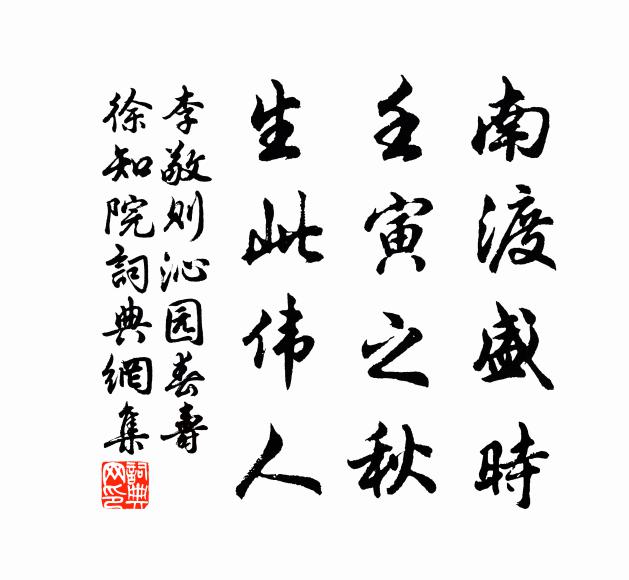 南渡盛時
壬寅之秋
生此伟人
李敬则沁园春壽
徐知院詞典網集
詞典网印